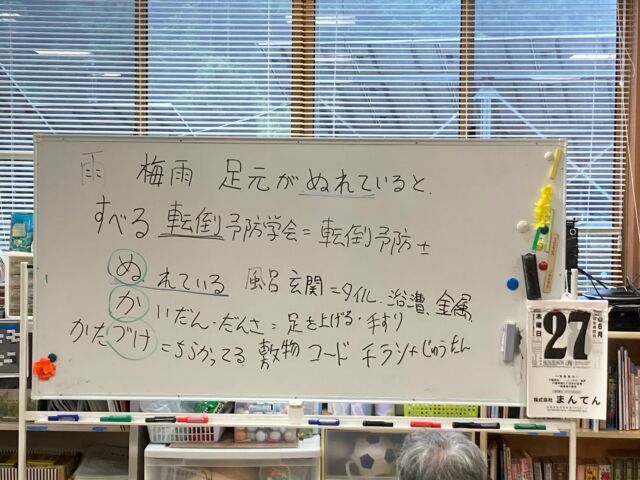 雨 梅雨 足元がぬれていると、
すべる 転倒予防学会=転倒予防士
ぬれている 風呂 玄関=タイル、浴漕、金属、
かいだん・だんさ=足を上げる・手すり
かたづけ=ちらかってる 敷物 コード チラシ+じゅうたん
6月
27
木曜日
株式会社 まんてん